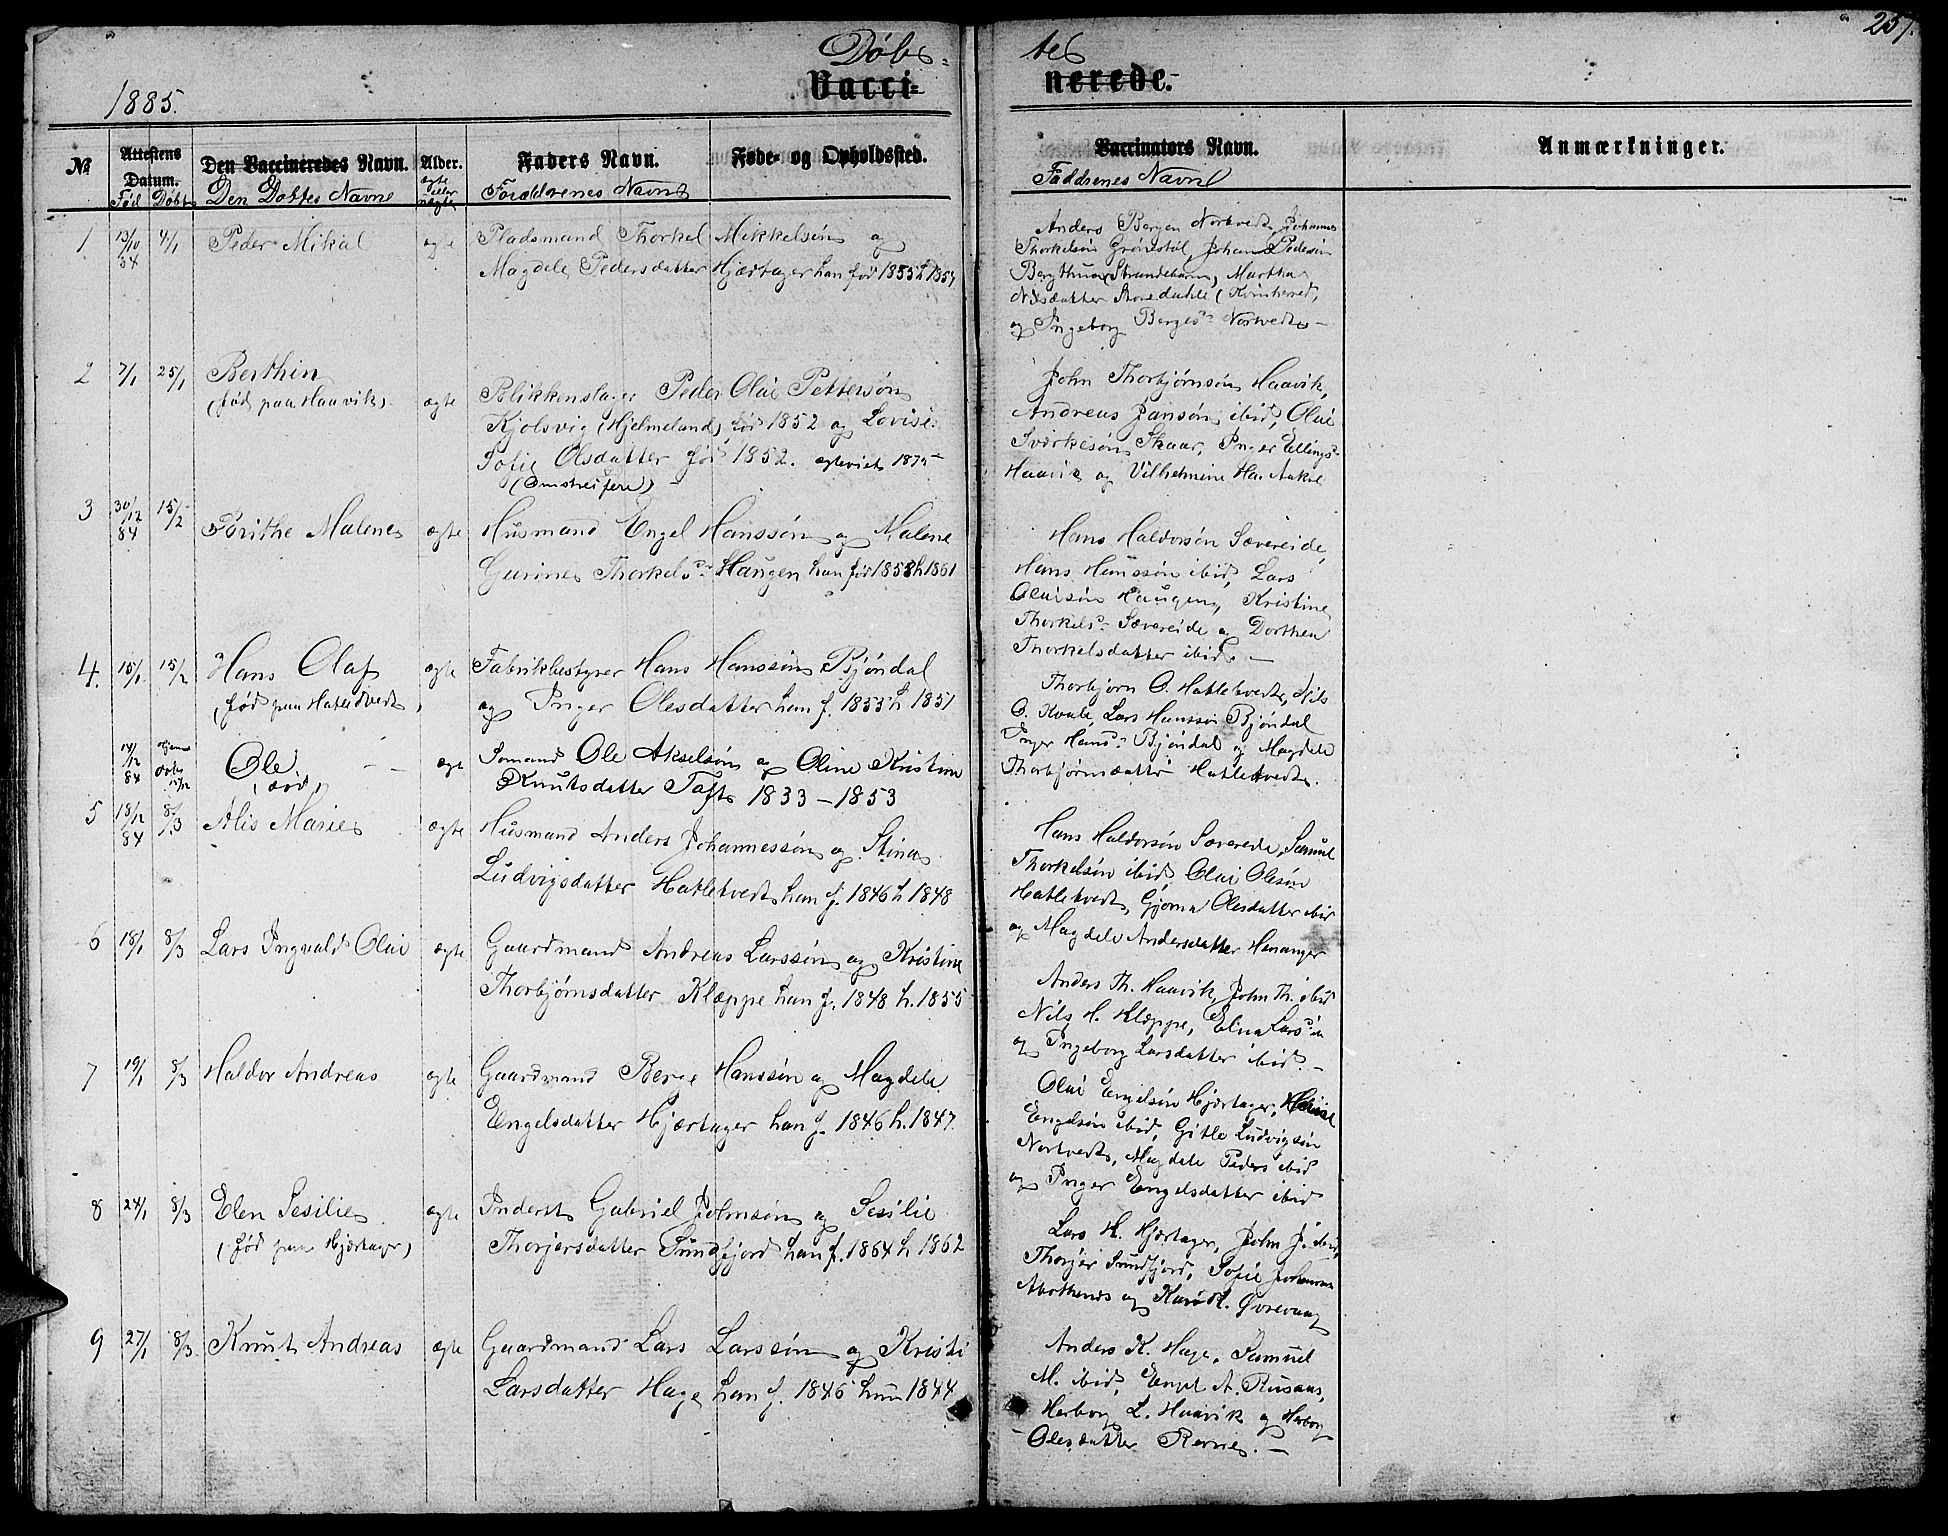 257.
Døbte
Vaccinerede.
1885.
№
Attestens Datum.
Den Vaccineredes Navn.
Alder.
Faders Navn.
Føde- og Opholdssted.
Vaccinators Navn.
Anmærkninger.
Fød
Døbt
Den Døbtes Navn
ægte eller uægte
Forældrenes Navne
Faddrenes Navne
1 13/10 84 4/1 Peder Mikal ægte Pladsmand Thorkel Mikkelsøn og
Magdele Pedersdatter Hjærtager han fød 1855 h. 1857
Anders Bergen Nortvedt, Johannes
Thorkelsøn Grønestøl, Johan Pedersøn
Bergthun (Strandebarm), Martha
Nilsdatter Storedahle (Kvinherred,
og Ingeborg Berges Nortvedt
2 7/1 25/1 Berthin
(fød paa Haavik)
ægte
Blikkenslager Peder Olai Pettersøn
Kjolsvig (Hjelmeland) fød 1852 og Lovise
Sofie Olsdatter fød 1852. ægteviet 1875
(Omstreifere)
John Thorbjørnsøn Haavik,
Andreas Jansøn ibid, Olai
Svirkesøn Skaar, Inger Ellings
Haavik og Vilhelmine
3 30/12 84 15/2 Børithe Malene ægte Husmand Engel Hanssøn og Malene
Gurine Thorkelsd. Haugen han fød 1858 h. 1861
Hans Haldorsøn Sævereide,
Hans Hanssøn ibid, Lars
Olaisøn Haugen, Kristine
Thorkelsd. Sævereide og Dorthea
Thorkelsdatter ibid.
4. 15/1 15/2 Hans Olaf
(fød paa Hatletvedt)
ægte Fabrikbestyrer Hans Hanssøn Bjøndal
og Inger Olesdatter han f. 1853 h. 1851
Thorbjørn O. Hatletvedt, Nils
O. Kvale, Lars Hanssøn Bjøndal
Inger Hansd. Bjøndal og Magdele
Thorbjørnsdatter Hatletvedt.
14/12 84 Hjemmedøbt 15/12 Ole
(død)
ægte Sømand Ole Akselsøn og Oline Kristine
Knutsdatter Tofte 1833 – 1853
5 18/12 84 8/3 Alis Marie ægte Husmand Anders Johannessøn og Stina
Ludvigsdatter Hatletvedt han f. 1846 h. 1848
Hans Haldorsøn Sævereide, Samuel
Thorkelsøn ibid Olai Olesøn
Hatletvedt, Gjørna Olesdatter ibid
og Magdele Andersdatter Hananger
6 18/1 8/3 Lars Ingvald Olai ægte Gaardmand Andreas Larssøn og Kristine
Thorbjørnsdatter Klæppe han f. 1848 h. 1855
Anders Th. Haavik, John Th. ibid
Nils H. Klæppe, Elna Larsd.
og Ingeborg Larsdatter ibid.
7 19/1 8/3 Haldor Andreas ægte Gaardmand Berge Hanssøn og Magdele
Engelsdatter Hjærtager han f. 1846 h. 1847.
Olai Engelsøn Hjærtager,
Engelsøn ibid, Gitle Ludvigsøn
Nortvedt, Magdele Peders ibid
og Inger Engelsdatter ibid
8 24/1 8/3 Elen Sesilie
(fød paa Hjærtager)
ægte Inderst Gabriel Johnsøn og Sesilie
Thorjersdatter Sundfjord han f. 1864 h 1862
Lars H. Hjærtager, John J. ibid,
Thorjer Sundfjord, Sofie
og Kari K.
9 27/1 8/3 Knut Andreas ægte Gaardmand Lars Larssøn og Kristi
Larsdatter Hage han f. 1846 hun 1844
Anders K. Hage, Samuel
M. ibid, Engel A. Rusaas,
Herborg L. Haavik og Herborg
Olesdatter Revne.